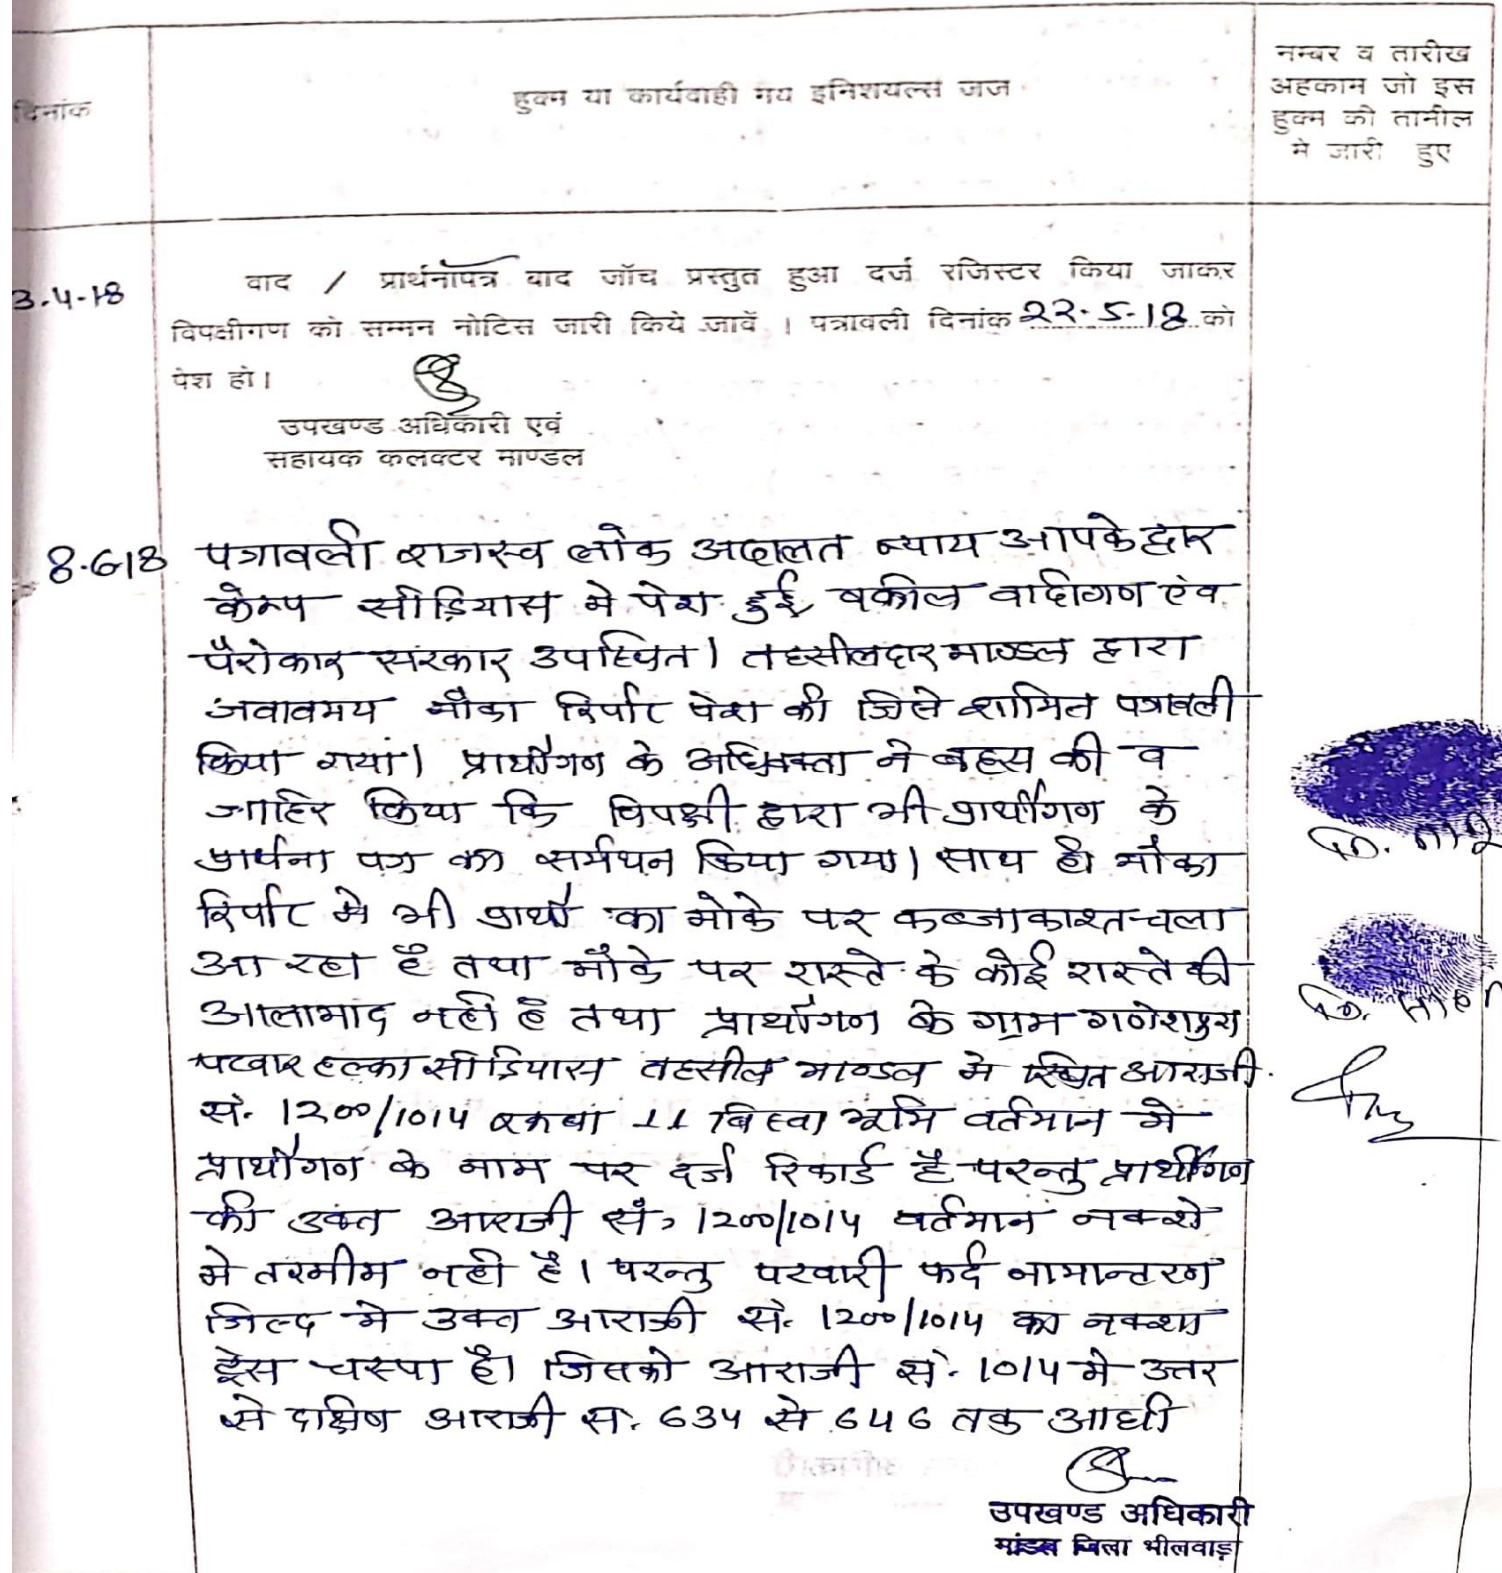 दिनांक
हुक्म या कार्यवाही मय इनिशयल्स जज
नम्बर व तारीख
अहकाम जो इस
हुक्म की तामील
मे जारी हुए
3.4.18
वाद / प्रार्थनापत्र वाद जॉच प्रस्तुत हुआ दर्ज रजिस्टर किया जाकर
विपक्षीगण को सम्मन नोटिस जारी किये जावें । पत्रावली दिनांक 22.5.18 को
पेश हो।
उपखण्ड अधिकारी एवं
सहायक कलक्टर माण्डल
8.6.18 पत्रावली राजस्व लोक अदालत न्याय आपके द्वार
केम्प सीडियास मे पेश हुई, वकील वादीगण एंव
पैरोकार सरकार उपस्थित। तहसीलदार माण्डल द्वारा
जवाबमय मौका रिर्पोट पेश की जिसे शामिल पत्रावली
किया गया। प्रार्थीगण के अधिवक्ता ने बहस की व
जाहिर किया कि विपक्षी द्वारा भी प्रार्थीगण के
प्रार्थना पत्र का सर्मथन किया गया। साथ ही मौका
रिर्पोट मे भी प्रार्थी का मोके पर कब्जाकाश्त चला
आ रहा है तथा मौके पर रास्ते के कोई रास्ते की
आलामाद नही है तथा प्रार्थीगण के ग्राम गणेशपुरा
पटवार हल्का सीडियास तहसील माण्डल मे स्थित आराजी
सं. 1200/1014 रकबा 11 बिस्वा भूमि वर्तमान मे
प्रार्थीगण के नाम पर दर्ज रिकार्ड है परन्तु प्रार्थीगण
की उक्त आराजी सं. 1200/1014 वर्तमान नक्शे
मे तरमीम नही है। परन्तु पटवारी फर्द नामान्तरण
जिल्द मे उक्त आराजी सं. 1200/1014 का नक्शा
ट्रेस चस्पा है। जिसको आराजी सं. 1014 मे उत्तर
से दक्षिण आराजी स. 634 से 646 तक आधी
उपखण्ड अधिकारी
मांडल जिला भीलवाड़ा